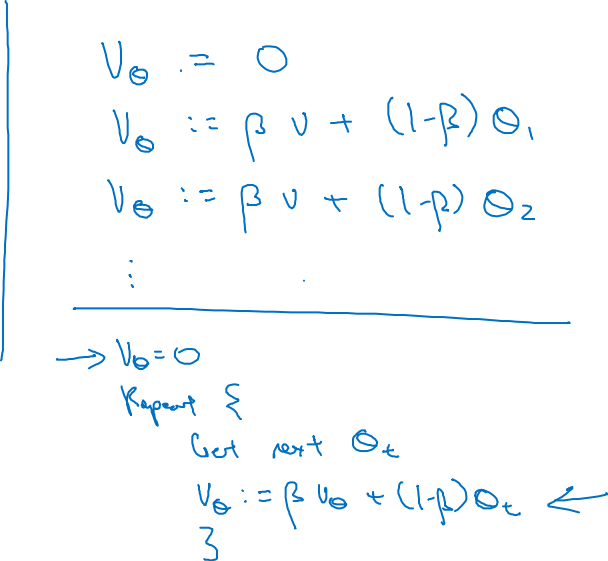 V_θ := 0
V_θ := β v + (1-β) θ_1
V_θ := β v + (1-β) θ_2
⋮
→ V_θ = 0
Repeat {
Get next θ_t
V_θ := β V_θ + (1-β) θ_t ←
}